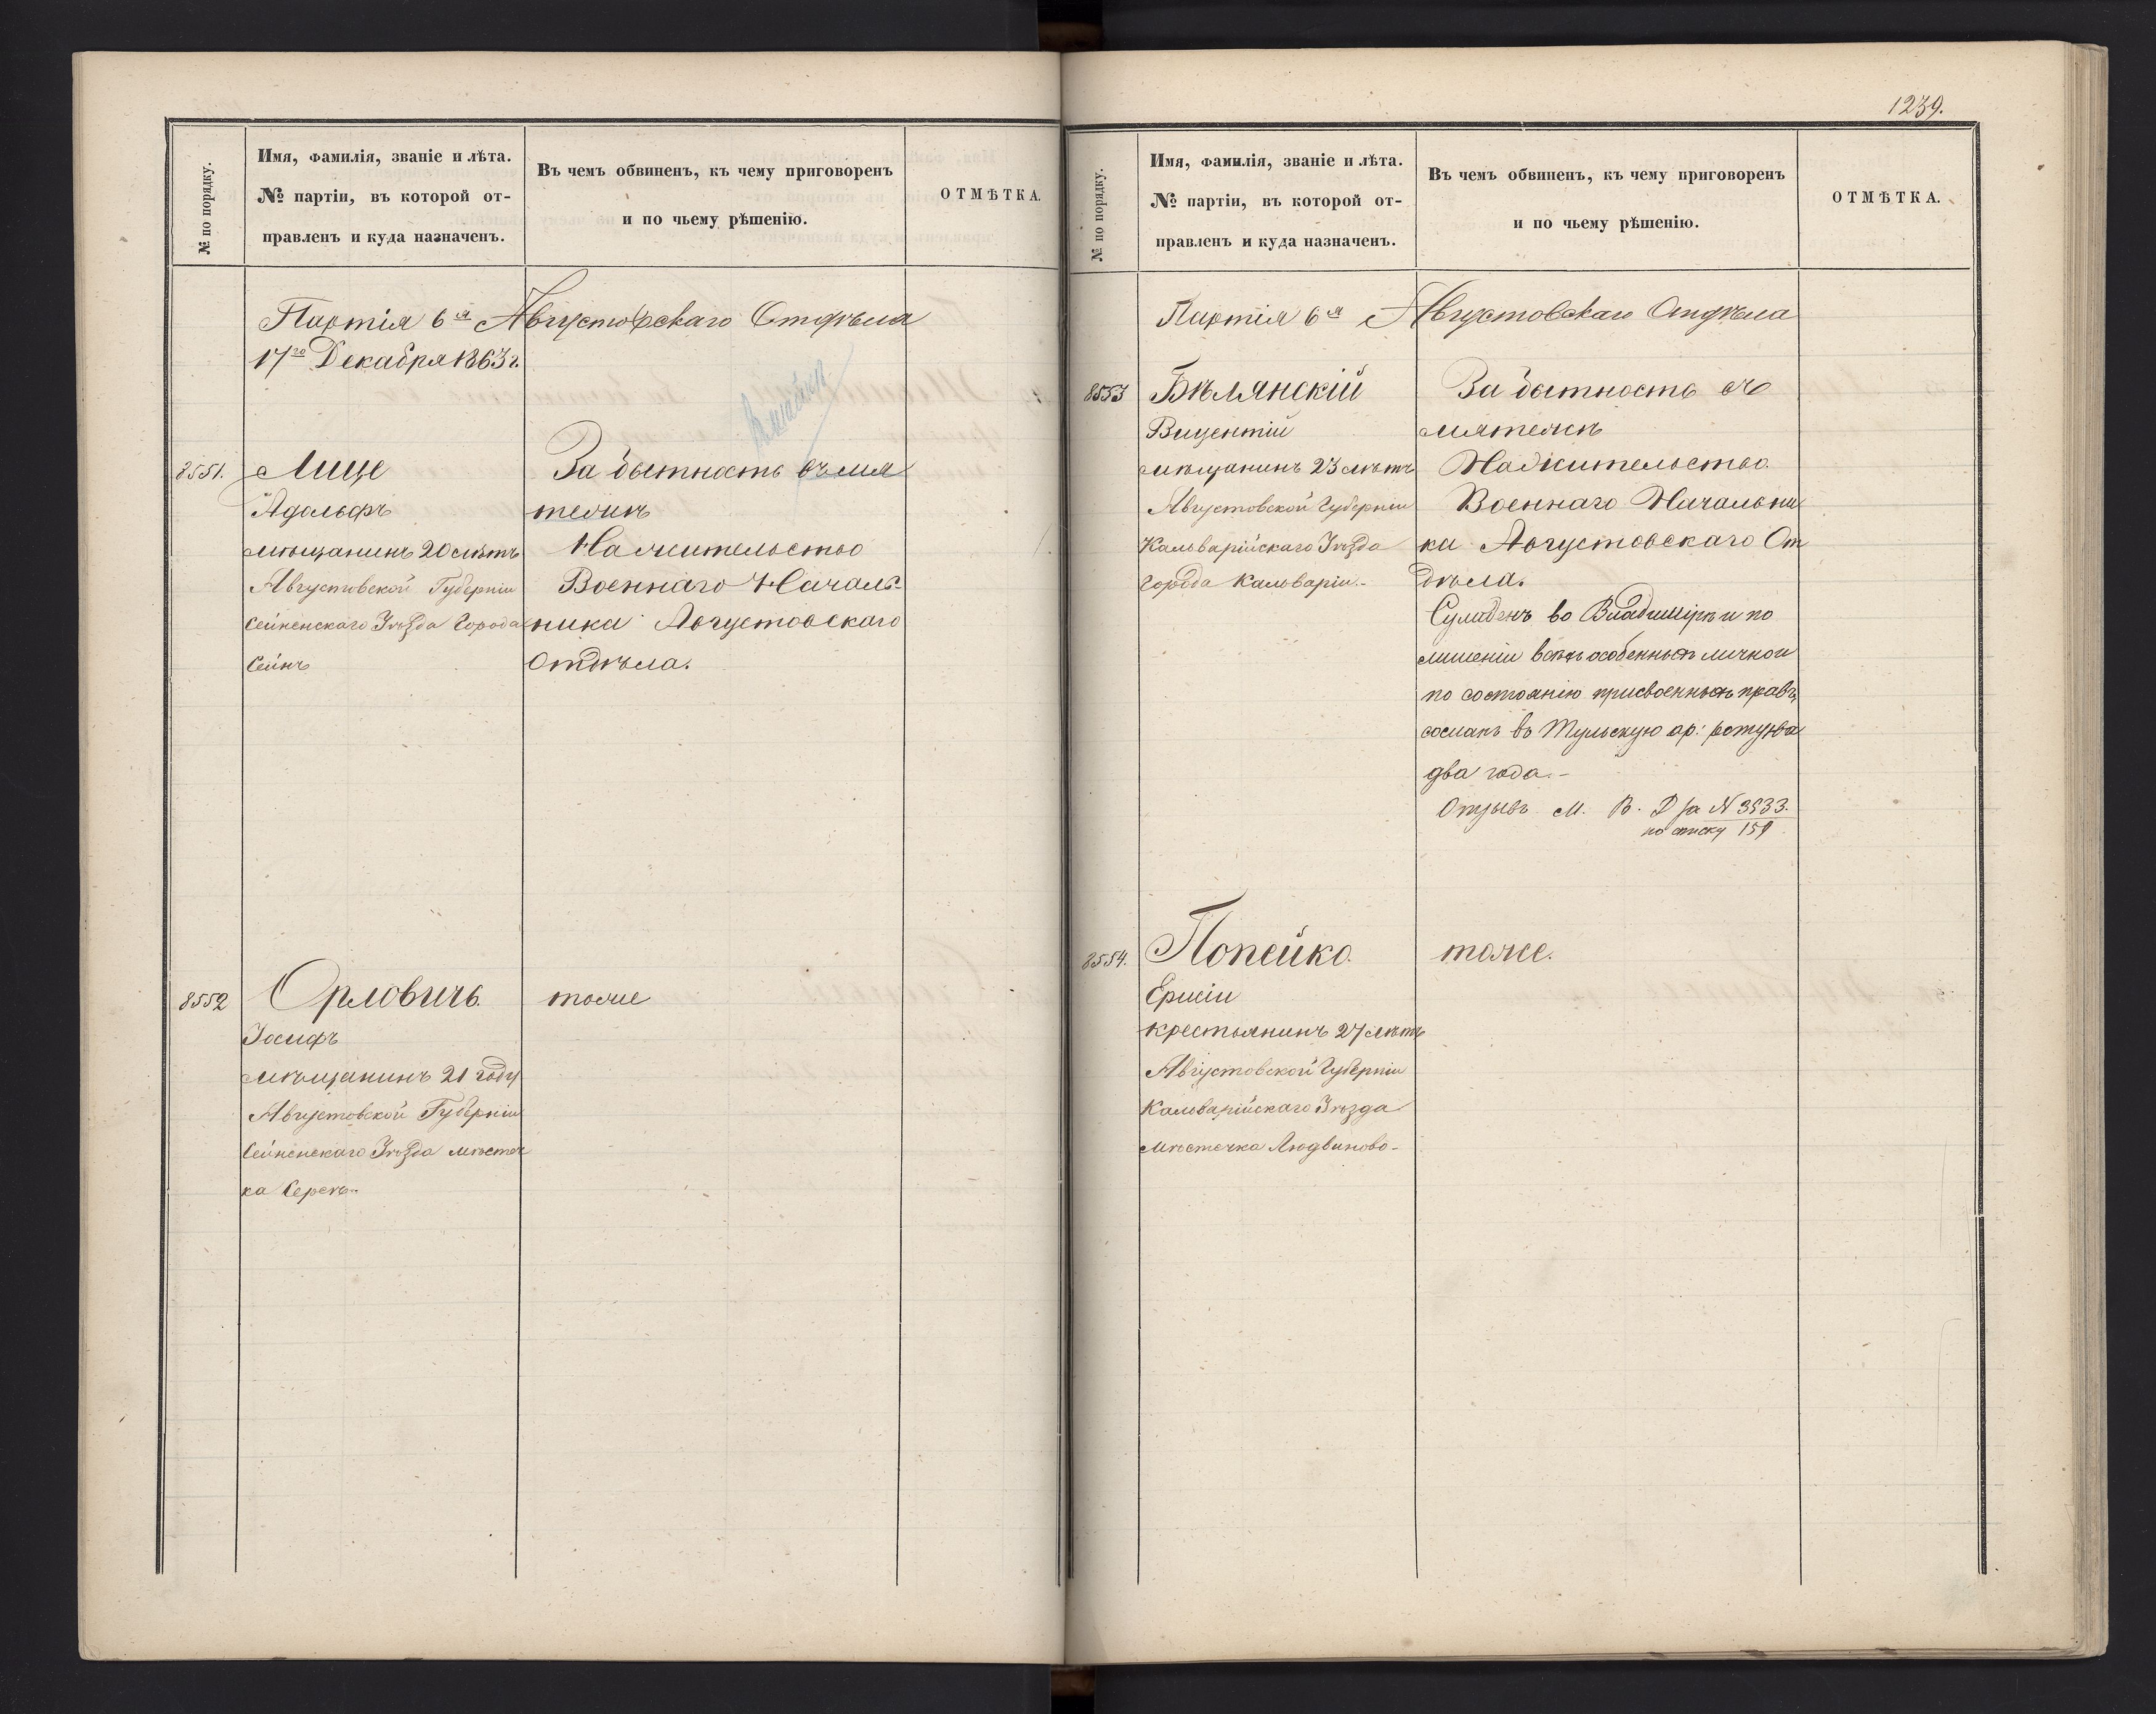 № по порядку.
Имя, фамилія, званіе и лѣта.
№ партіи, въ которой от-
правленъ и куда назначенъ.
Въ чемъ обвиненъ, къ чему приговоренъ
и по чьему рѣшенію.
ОТМѢТКА.
Партія 6я Августовскаго Отдѣла
17го Декабря 1863 г.
8551.
Лице
Адольфъ
мѣщанинъ 20 лѣтъ
Августовской Губерніи
Сейненскаго Уѣзда Города
Сейнъ
За бытность въ мя
тежѣ
На жительство
Военнаго Началь-
ника Августовскаго
Отдѣла.
8552
Орловичъ.
Іосифъ
мѣщанинъ 21 году
Августовской Губерніи
Сейненскаго Уѣзда мѣстеч
ка Сереѣ
тоже
1239.
№ по порядку.
Имя, фамилія, званіе и лѣта.
№ партіи, въ которой от-
правленъ и куда назначенъ.
Въ чемъ обвиненъ, къ чему приговоренъ
и по чьему рѣшенію.
ОТМѢТКА.
Партія 6я Августовскаго Отдѣла
8553
Бѣлянскій
Вицентій
мѣщанинъ 23 лѣтъ
Августовской Губерніи
Кальварійскаго Уѣзда
города Кальваріи.-
За бытность въ
мятежѣ
На жительство.
Военнаго Начальни
ка Августовскаго От
дѣла.
Сужденъ во Владимірѣ и по
лишеніи всѣхъ особенныхъ лично и
по состоянію присвоенныхъ правъ,
сосланъ въ Тульскую ар: роту на
два года.-
Отзывъ М. В. Д за N 3833.
по списку 159
8554.
Попейко.
крестьянинъ 27 лѣтъ
Августовской Губерніи
Кальварійскаго Уѣзда
мѣстечка Людвиново-
тоже.